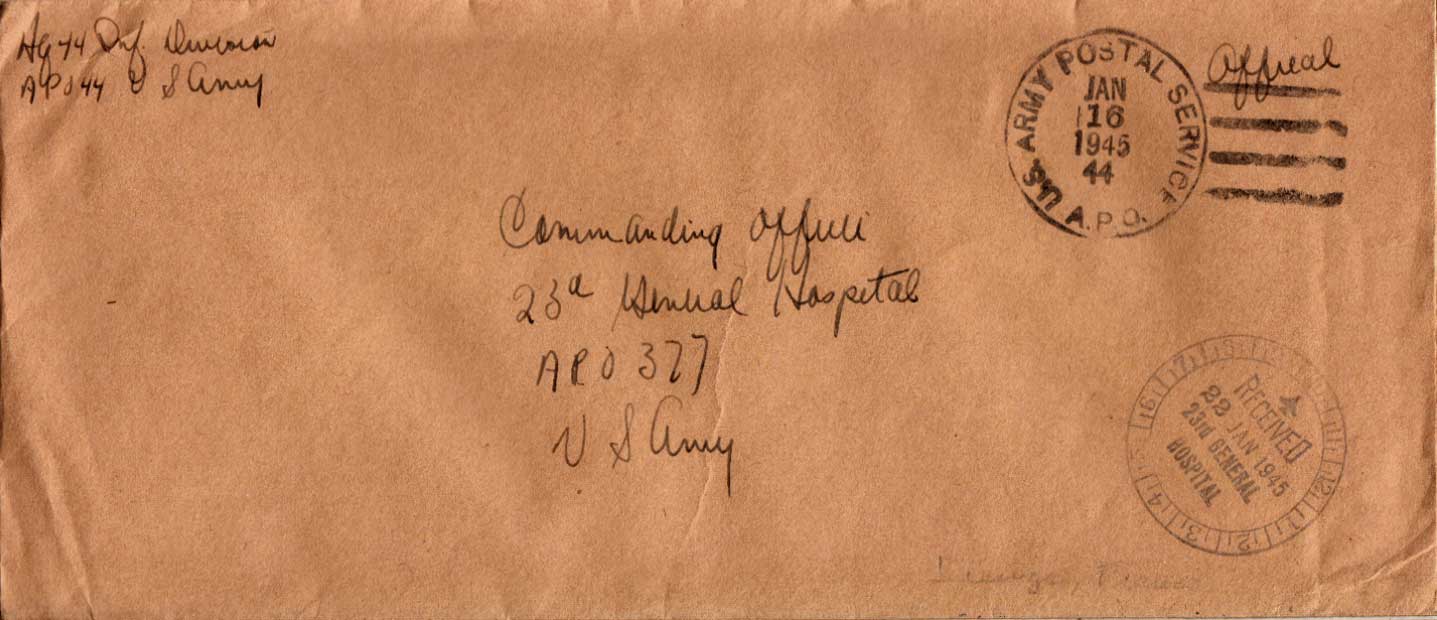 Hq 44 Inf. Division
APO 44 U S Army
Official
U.S. ARMY POSTAL SERVICE
JAN
16
1945
44
A.P.O.
Commanding Officer
23d General Hospital
APO 377
U S Army
RECEIVED
22 JAN 1945
23RD GENERAL
HOSPITAL
6 7 12 1 2 3 4
France